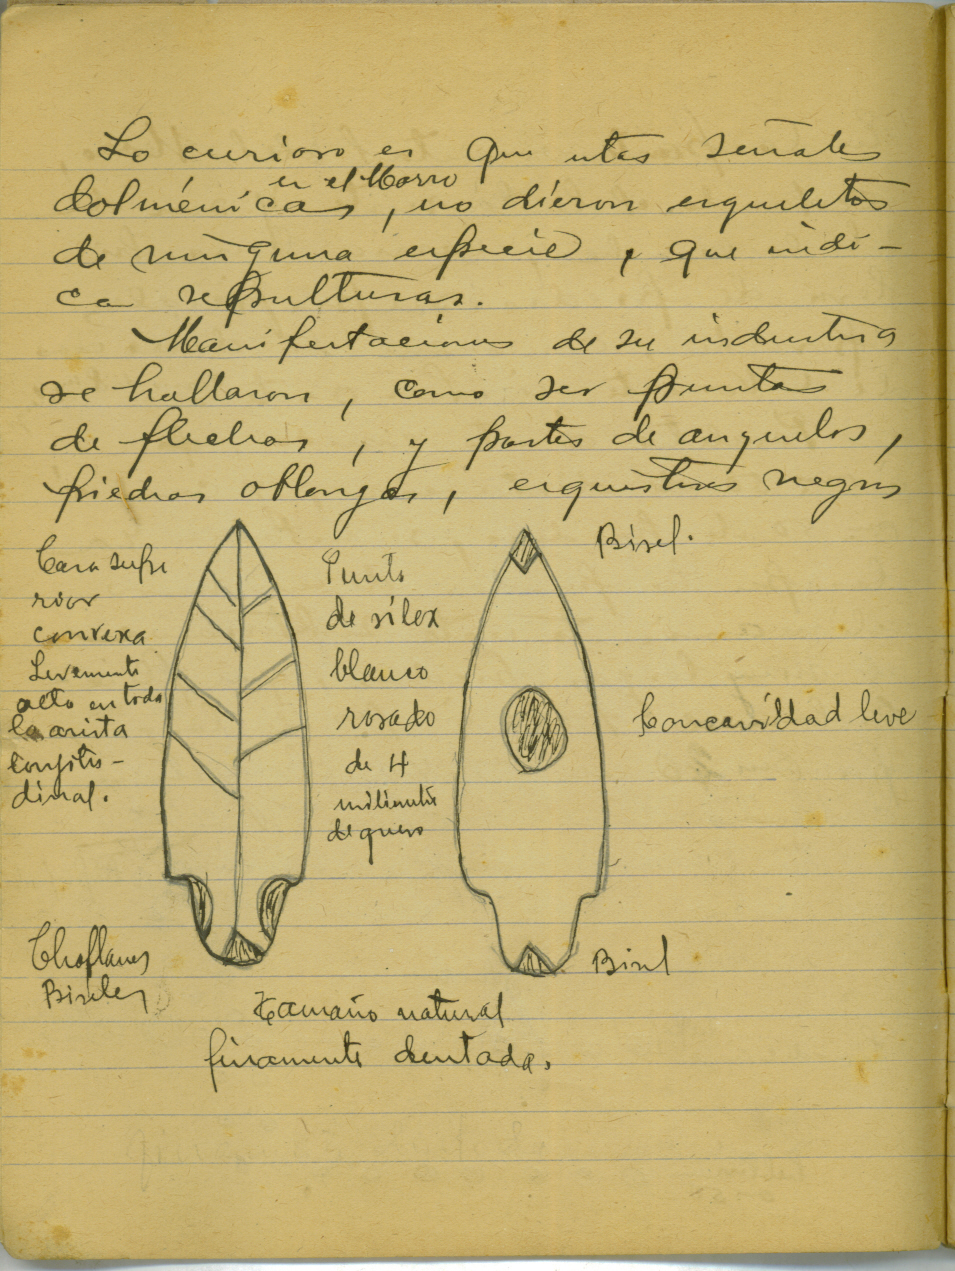 Lo curioso es que estas señales
en el Morro
dolménicas, no dieron esqueletos
de ninguna especie, que indi-
ca sepulturas.
Manifestaciones de su industria
se hallaron, como ser puntas
de flechas, y partes de anzuelos,
piedras oblongas, esquistos negros
Cara supe
rior
convexa
Levemente
alto en toda
la arista
longitu-
dinal.
Punta
de sílex
blanco
rosado
de 4
milimets
de grueso
Bisel.
Concavidad leve
Chaflanes
Biseles
Bisel
Tamaño natural
finamente dentada.